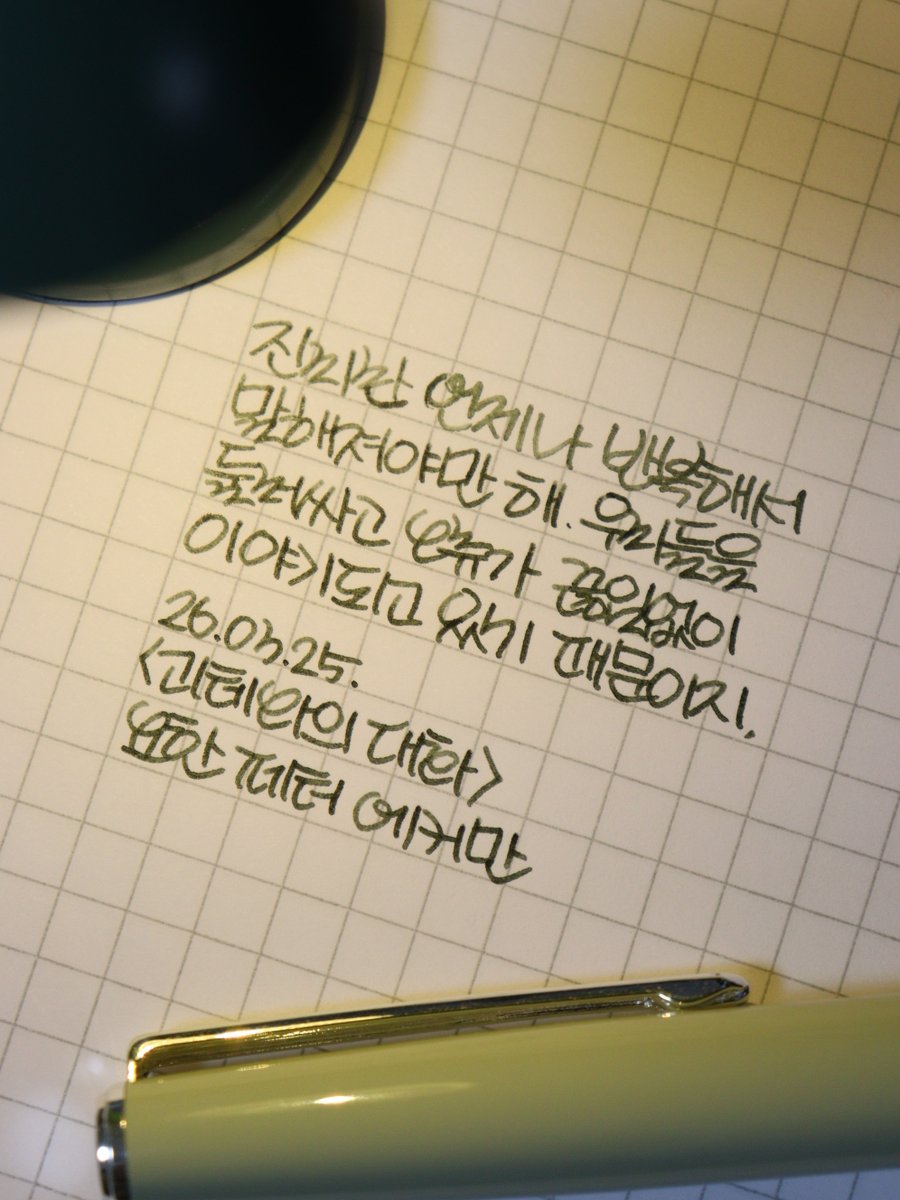 진리란 언제나 반복해서
말해져야만 해. 우리들을
둘러싸고 오류가 끊임없이
이야기되고 있기 때문이지.
26.03.25.
<괴테와의 대화>
요한 페터 에커만